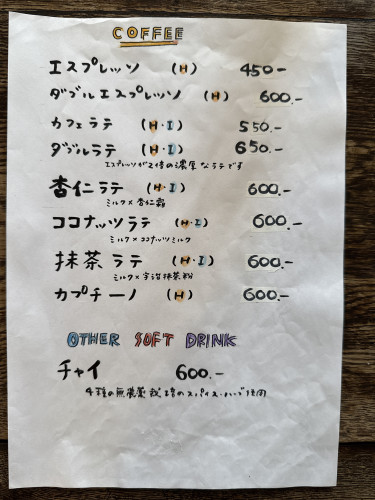 COFFEE
エスプレッソ (H) 450-
ダブルエスプレッソ (H) 600.-
カフェラテ (H・I) 550.-
ダブルラテ (H・I) 650.-
エスプレッソが2倍の濃厚なラテです
杏仁ラテ (H・I) 600.-
ミルク×杏仁霜
ココナッツラテ (H・I) 600.-
ミルク×ココナッツミルク
抹茶ラテ (H・I) 600.-
ミルク×宇治抹茶粉
カプチーノ (H) 600.-
OTHER SOFT DRINK
チャイ 600.-
4種の無農薬栽培のスパイス・ハーブ使用